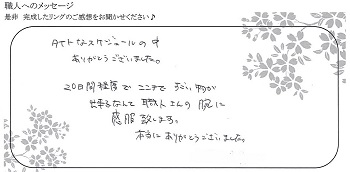 職人へのメッセージ
是非 完成したリングのご感想をお聞かせください♪
タイトなスケジュールの中
ありがとうございました。
20日間程度で ここまで すごい 物が
出来るなんて 職人さんの 腕に
感服致します。
本当に ありがとうございました。